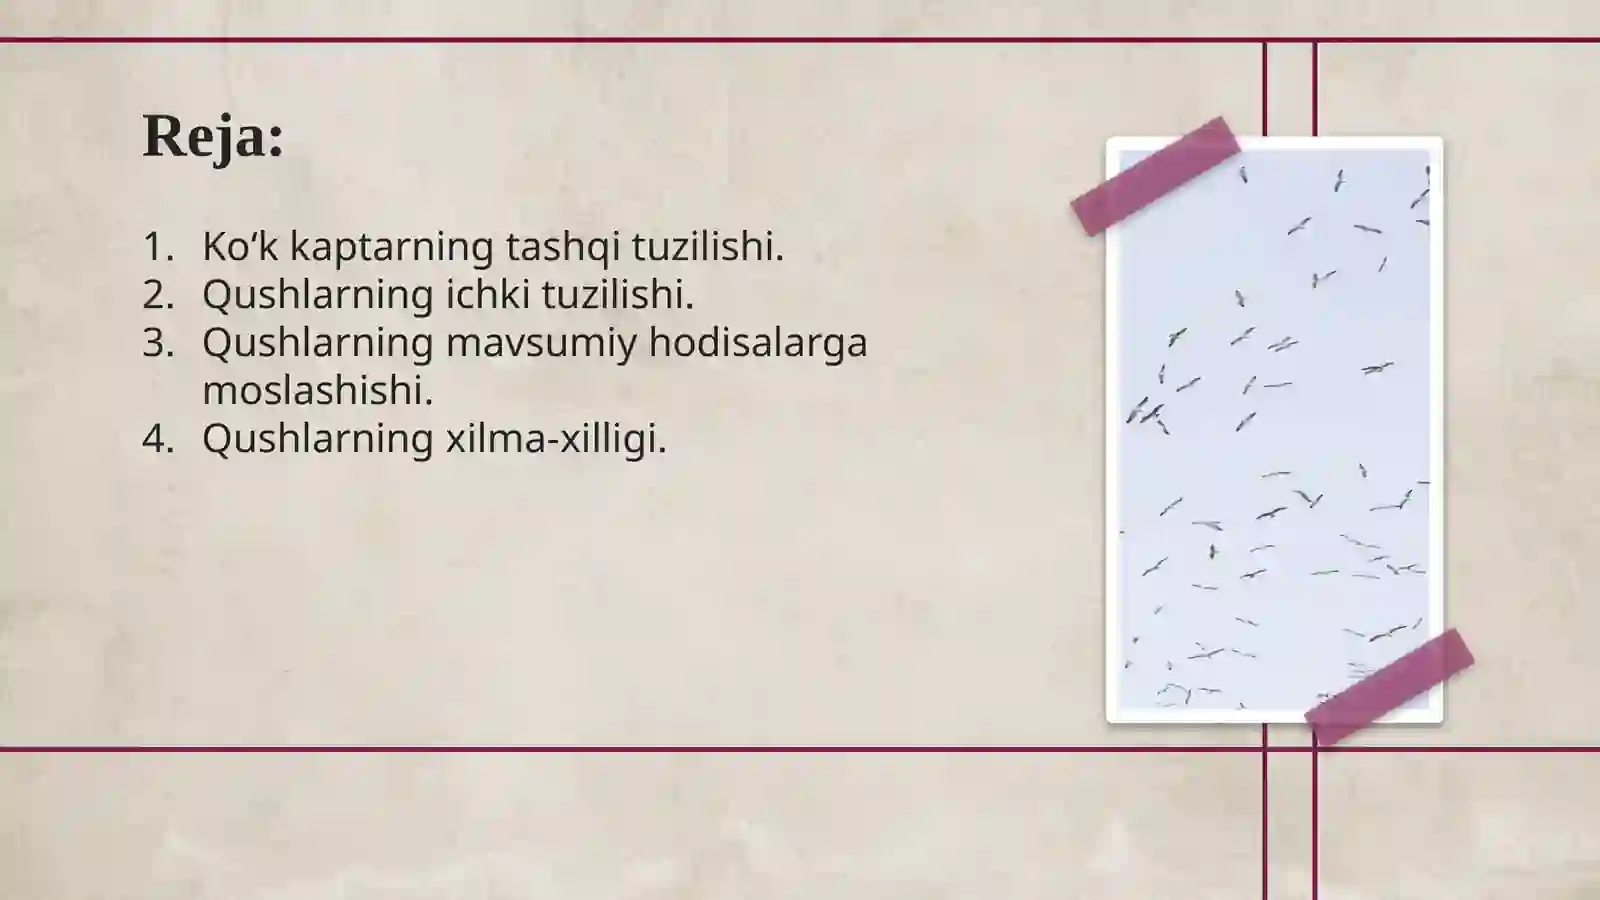 Reja:
1. Ko‘k kaptarning tashqi tuzilishi.
2. Qushlarning ichki tuzilishi.
3. Qushlarning mavsumiy hodisalarga
moslashishi.
4. Qushlarning xilma-xilligi.